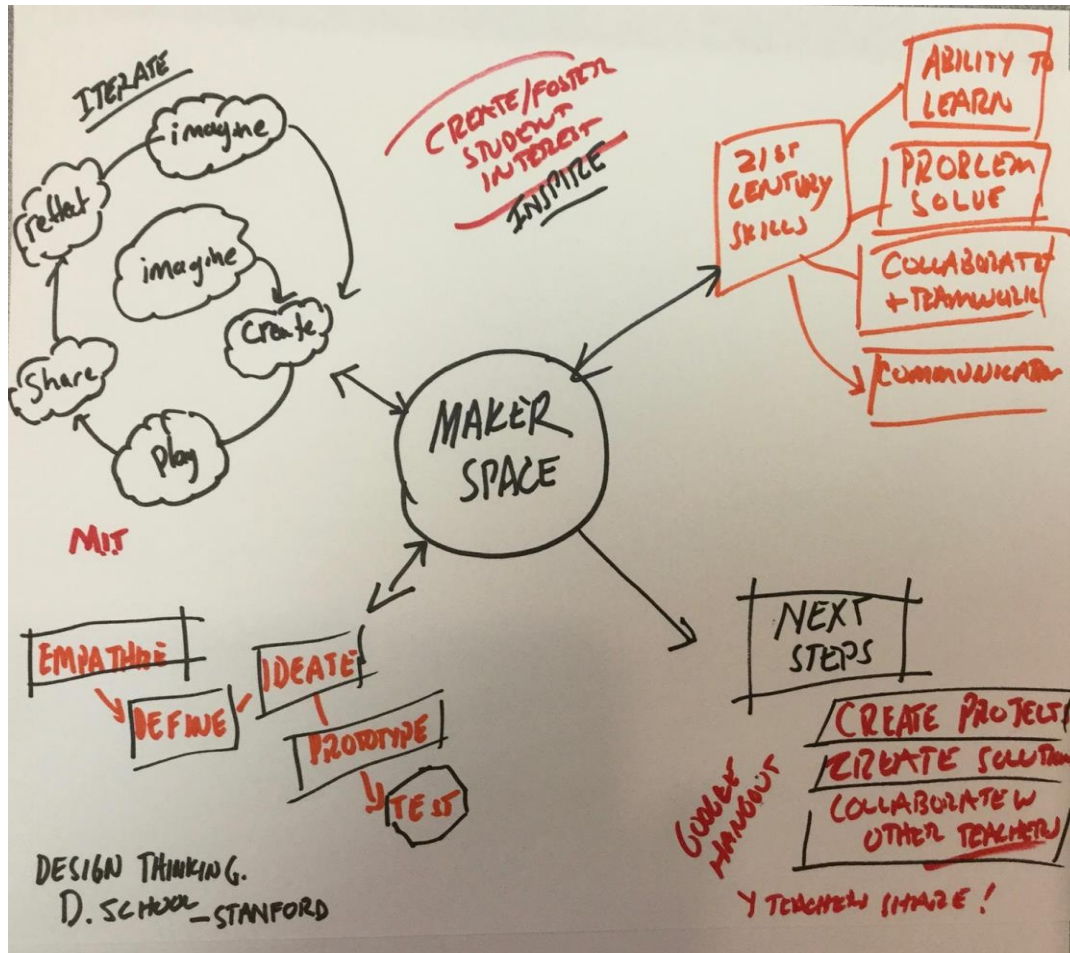 ITERATE
imagine
reflect
imagine
create
share
play
MIT
CREATE/FOSTER
STUDENT
INTEREST
INSPIRE
21ST
CENTURY
SKILLS
ABILITY TO
LEARN
PROBLEM
SOLVE
COLLABORATE
+ TEAMWORK
COMMUNICATION
MAKER
SPACE
EMPATHIZE
DEFINE
IDEATE
PROTOTYPE
TEST
DESIGN THINKING.
D. SCHOOL - STANFORD
NEXT
STEPS
CREATE PROJECTS
CREATE SOLUTIONS
COLLABORATE W
OTHER TEACHERS
GOOGLE
HANGOUT
Y TEACHERS SHARE!